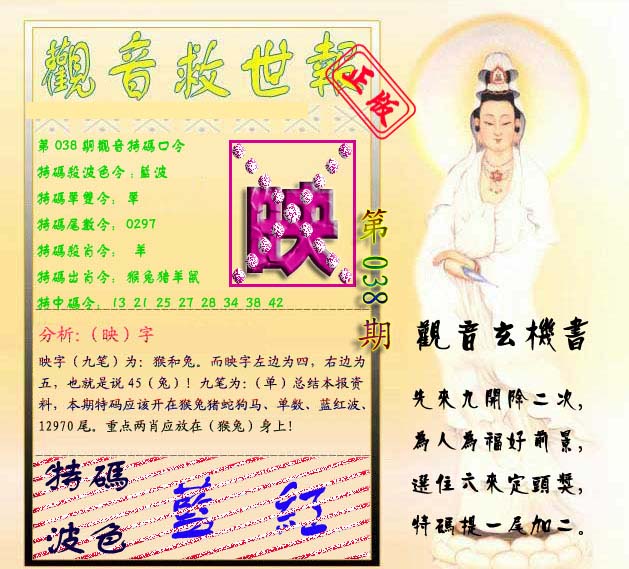 觀音救世報
正版
第038期觀音特碼口令
特碼殺波色令：藍波
特碼單雙令： 單
特碼尾數令： 0297
特碼殺肖令： 羊
特碼出肖令： 猴兔猪羊鼠
特中碼令： 13 21 25 27 28 34 38 42
映
第038期
分析:（映）字
映字（九笔）为：猴和兔。而映字左边为四，右边为
五，也就是说45（兔）！九笔为：（单）总结本报资
料，本期特码应该开在猴兔猪蛇狗马、单数、蓝红波、
12970尾。重点两肖应放在（猴兔）身上！
特碼
波色
藍 红
觀音玄機書
先來九開除二次，
為人為福好前景，
選住六來定頭獎，
特碼提一尾加二。